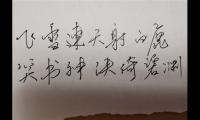 飞雪連天射白鹿
笑书神侠倚碧